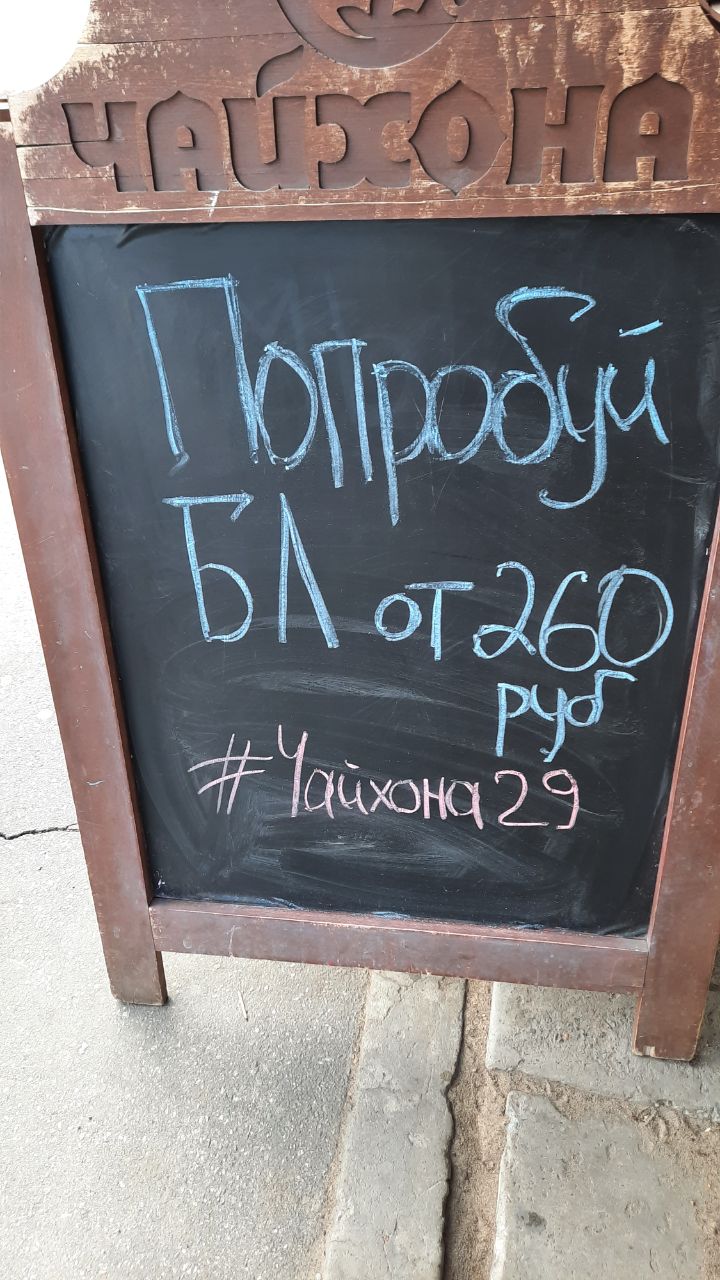 ЧАЙХОНА
Попробуй
БЛ от 260
руб
#Чайхона29